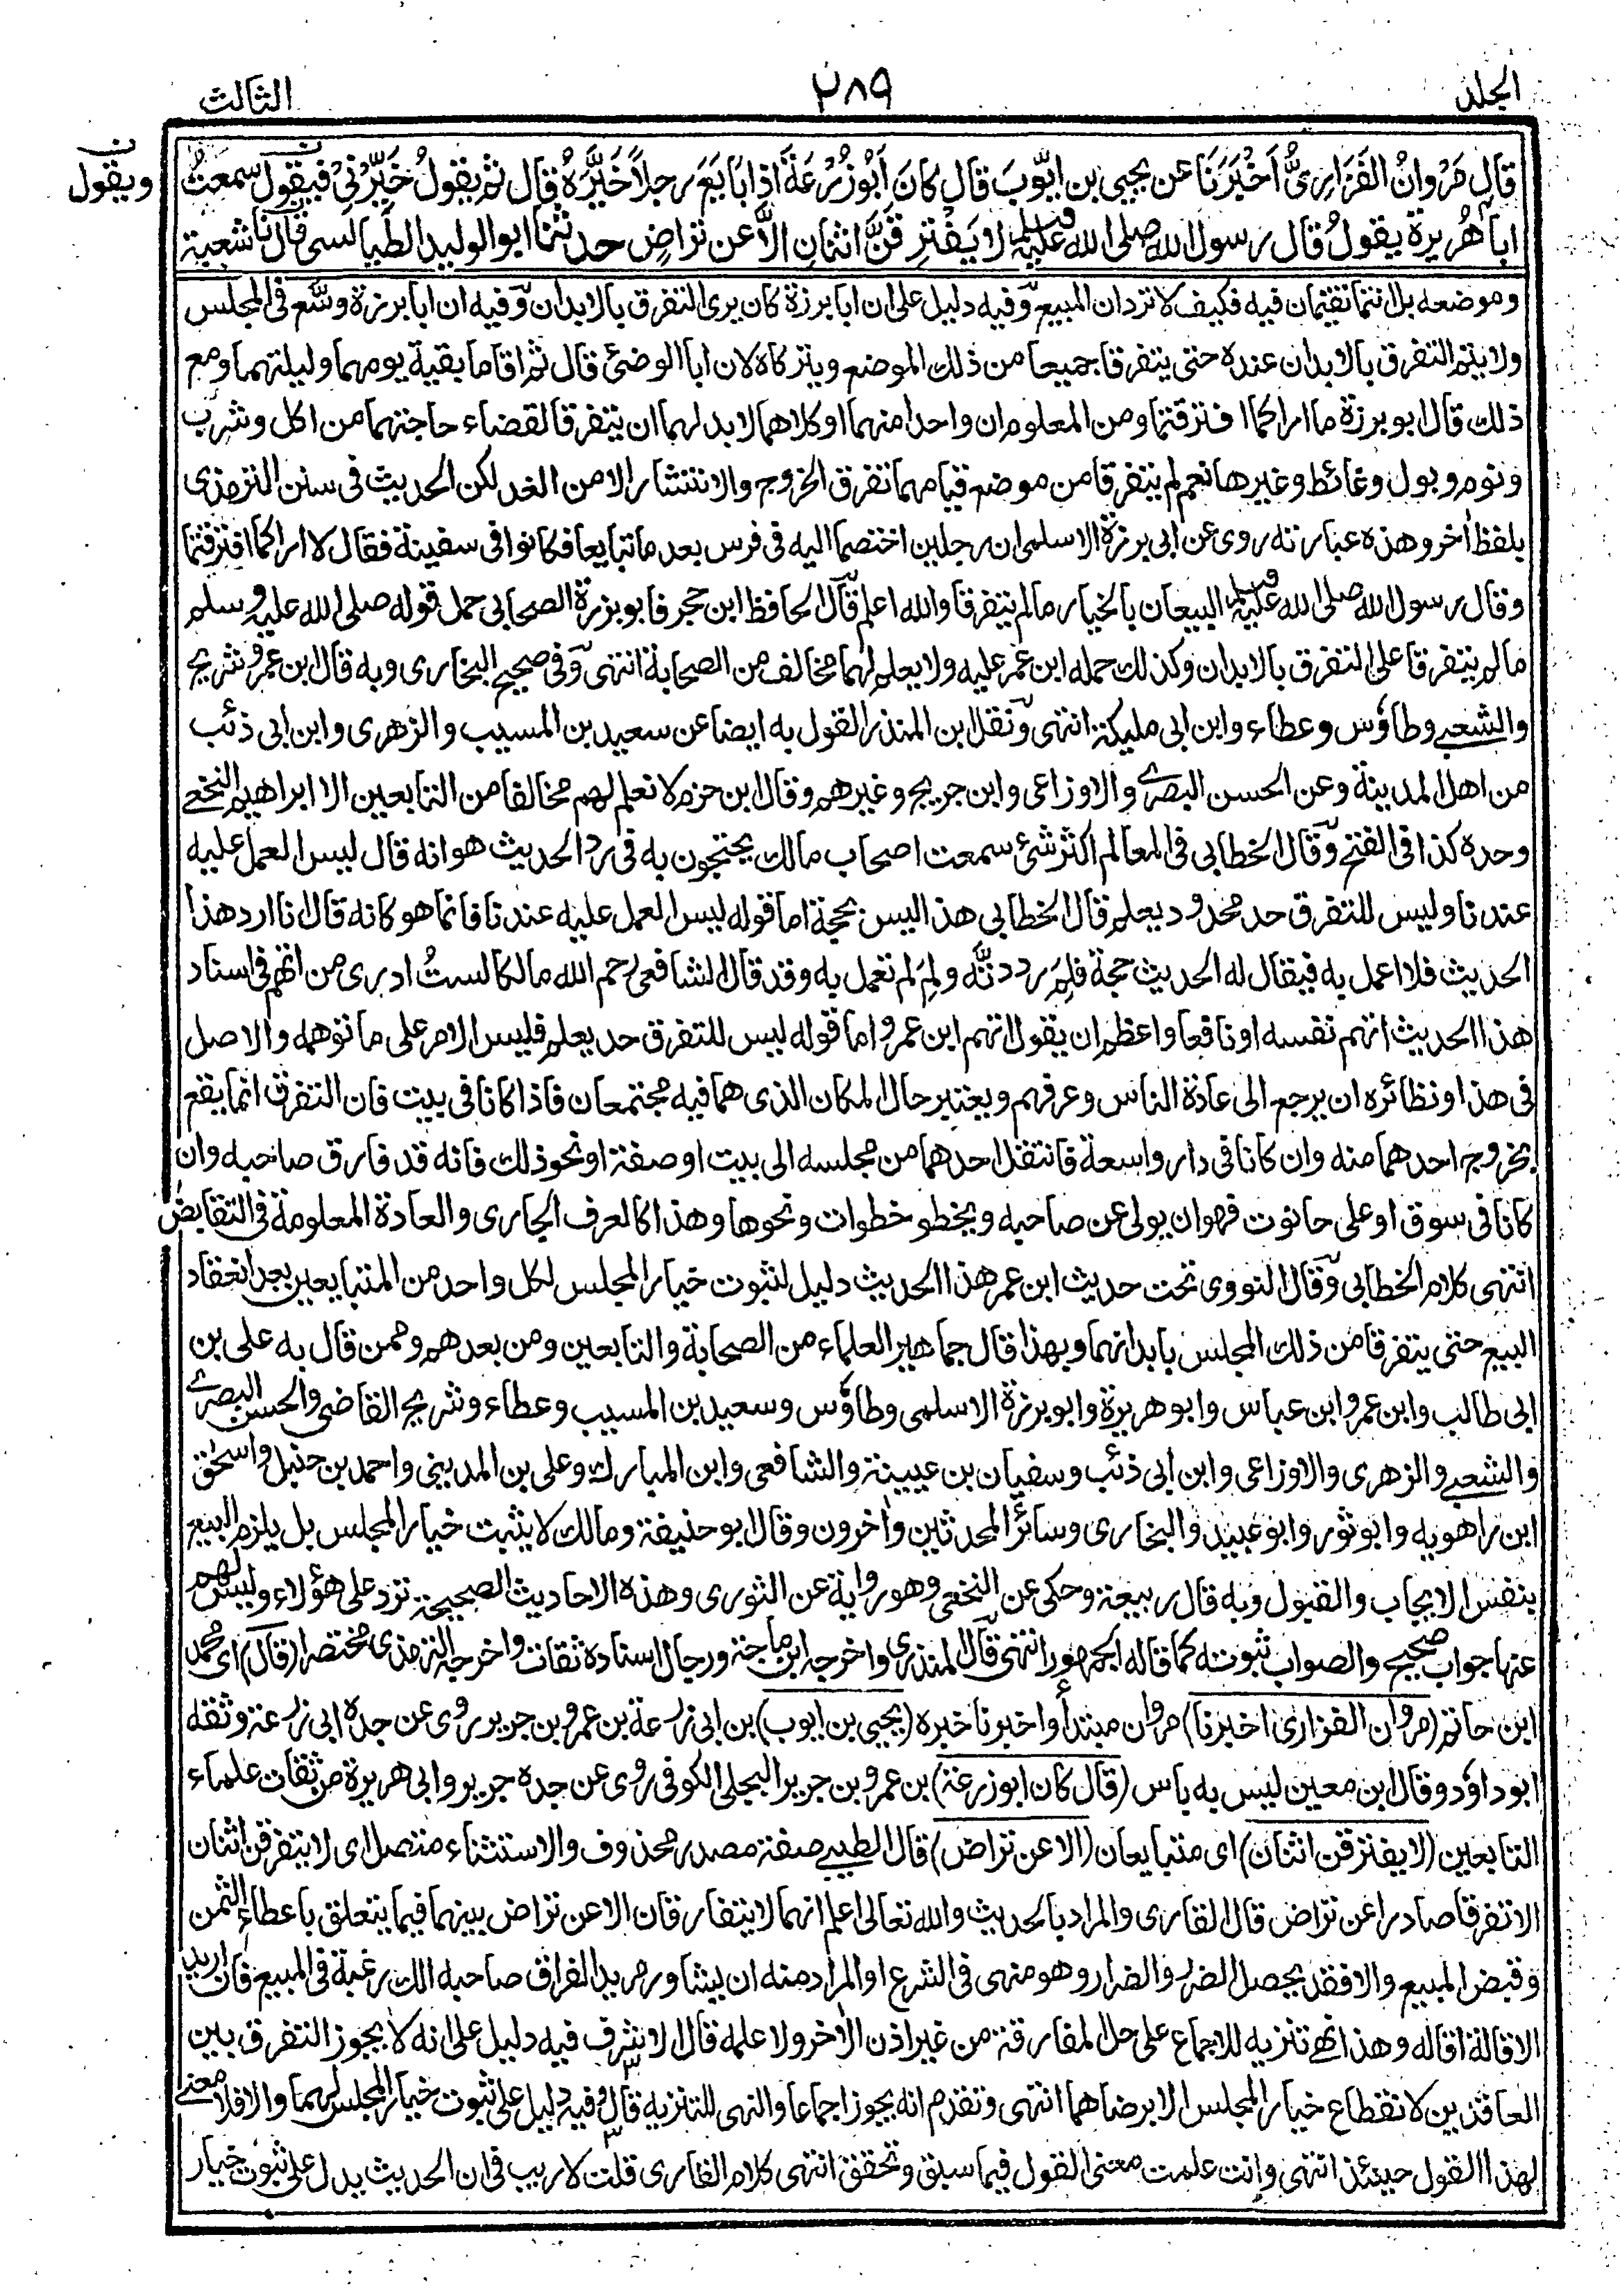 الجلد
٢٨٩
الثالث
قال مَرْوانُ الفَزَارِىُّ أَخْبَرَنَا عن يحيى بن ايّوبَ قال كانَ أَبُوْزُرْعَةَ اذا بَايَعَ رجلاً خَيَّرَهُ قال ثم يقولُ خَيِّرْنِىْ فيقول سمعتُ
ويقول
اباهُرِيرةَ يقولُ قال رسول الله صلى الله عليه وسلم لا يَفْتَرِقَنَّ اثنانِ الاَّ عن تراضٍ حدثنا ابوالوليد الطيالسى قال نا شعبة
وموضعه بل انتما تقيمان فيه فكيف لا تردان المبيع وفيه دليل على ان ابا برزة كان يرى التفرق بالابدان وفيه ان ابا برزة وسّع فى المجلس
ولا يتم التفرق بالابدان عنده حتى يتفرقا جميعا من ذلك الموضع ويتركاه لان ابا الوضئ قال ثم اقاما بقية يومهما وليلتهما ومع
ذلك قال ابو برزة ما اراكما افترقتما ومن المعلوم ان واحدا منهما او كلاهما لابد لهما ان يتفرقا لقضاء حاجتهما من اكل وشرب
ونوم وبول وغائط وغيرها نعم لم يتفرقا من موضع قيامهما تفرق الخروج والانتشار الا من الغد لكن الحديث فى سنن الترمذى
بلفظ اٰخر وهذه عبارته روى عن ابى برزة الاسلمى ان رجلين اختصما اليه فى فرس بعد ما تبايعا فكانوا فى سفينة فقال لا اراكما افترقتما
وقال رسول الله صلى الله عليه وسلم البيعان بالخيار مالم يتفرقا والله اعلم قال الحافظ ابن حجر فابو برزة الصحابى حمل قوله صلى الله عليه وسلم
مالم يتفرقا على التفرق بالابدان وكذلك حمله ابن عمر عليه ولا يعلم لهما مخالف من الصحابة انتهى وفى صحيح البخارى وبه قال ابن عمر وشريح
والشعبے وطاؤس وعطاء وابن ابى مليكة انتهى ونقل ابن المنذر القول به ايضا عن سعيد بن المسيب والزهرى وابن ابى ذئب
من اهل المدينة وعن الحسن البصرے والاوزاعى وابن جريج وغيرهم وقال ابن حزم لا نعلم لهم مخالفا من التابعين الا ابراهيم النخعے
وحده كذا فى الفتح وقال الخطابى فى المعالم اكثر شئ سمعت اصحاب مالك يحتجون به فى رد الحديث هو انه قال ليس العمل عليه
عندنا وليس للتفرق حد محدود يعلم قال الخطابى هذا ليس بحجة اما قوله ليس العمل عليه عندنا فانما هو كانه قال انا ارد هذا
الحديث فلا اعمل به فيقال له الحديث حجة فلِمَ رددتَّه ولِمَ لم تعمل به وقد قال الشافعى رحم الله مالكا لستُ ادرى من اتهم فى اسناد
هذا الحديث اتهم نفسه او نافعا واعظم ان يقول اتهم ابن عمر واما قوله ليس للتفرق حد يعلم فليس الامر على ما توهمه والاصل
فى هذا ونظائره ان يرجع الى عادة الناس وعرفهم ويعتبر حال المكان الذى هما فيه مجتمعان فاذا كانا فى بيت فان التفرق انما يقع
بخروج احدهما منه وان كانا فى دار واسعة فانتقل احدهما من مجلسه الى بيت او صفة او نحو ذلك فانه قد فارق صاحبه وان
كانا فى سوق او على حانوت فهو ان يولى عن صاحبه ويخطو خطوات ونحوها وهذا كالعرف الجارى والعادة المعلومة فى التقابض
انتهى كلام الخطابى وقال النووى تحت حديث ابن عمر هذا الحديث دليل لثبوت خيار المجلس لكل واحد من المتبايعين بعد انعقاد
البيع حتى يتفرقا من ذلك المجلس بابدانهما وبهذا قال جماهير العلماء من الصحابة والتابعين ومن بعدهم وممن قال به على بن
ابى طالب وابن عمر وابن عباس وابو هريرة وابو برزة الاسلمى وطاؤس وسعيد بن المسيب وعطاء وشريح القاضى والحسن البصرے
والشعبے والزهرى والاوزاعى وابن ابى ذئب وسفيان بن عيينة والشافعى وابن المبارك وعلى بن المدينى واحمد بن حنبل واسحٰق
ابن راهويه وابو ثور وابو عبيد والبخارى وسائر المحدثين واٰخرون وقال ابو حنيفة ومالك لا يثبت خيار المجلس بل يلزم البيع
بنفس الايجاب والقبول وبه قال ربيعة وحكى عن النخعى وهو رواية عن الثورى وهذه الاحاديث الصحيحة ترد على هؤلاء وليس لهم
عنها جواب صحيح والصواب ثبوته كما قاله الجمهور انتهى قال المنذرى واخرجه ابن ماجة ورجال اسناده ثقات واخرجه الترمذى مختصرا (قال) اى محمد
ابن حاتم (مروان الفزارى اخبرنا) مروان مبتدأ واخبرنا خبره (يحيى بن ايوب) بن ابى زرعة بن عمرو بن جرير روى عن جده ابى زرعة وثقه
ابو داؤد وقال ابن معين ليس به باس (قال كان ابو زرعة) بن عمرو بن جرير البجلى الكوفى روى عن جده جرير وابى هريرة من ثقات علماء
التابعين (لا يفترقن اثنان) اى متبايعان (الا عن تراض) قال الطيبے صفة مصدر محذوف والاستثناء متصل اى لا يتفرقن اثنان
الا تفرقا صادرا عن تراض قال القارى والمراد بالحديث والله تعالى اعلم انهما لا يتفارقان الا عن تراض بينهما فيما يتعلق باعطاء الثمن
وقبض المبيع والا فقد يحصل الضرر والضرار وهو منهى فى الشرع او المراد منه ان يشاور مريد الفراق صاحبه الك رغبة فى المبيع فان اريد
الاقالة اقاله وهذا نهے تنزيه للاجماع على حل المفارقة من غير اذن الاٰخر ولا علمه قال الاشرف فيه دليل على انه لا يجوز التفرق بين
العاقدين لانقطاع خيار المجلس الا برضاهما انتهى وتقدم انه يجوز اجماعا والنهى للتنزيه قال وفيه دليل على ثبوت خيار المجلس لهما والا فلا معنے
لهذا القول حينئذ انتهى وانت علمت معنى القول فيما سبق وتحقق انتهى كلام القارى قلت لا ريب فى ان الحديث يدل على ثبوت خيار